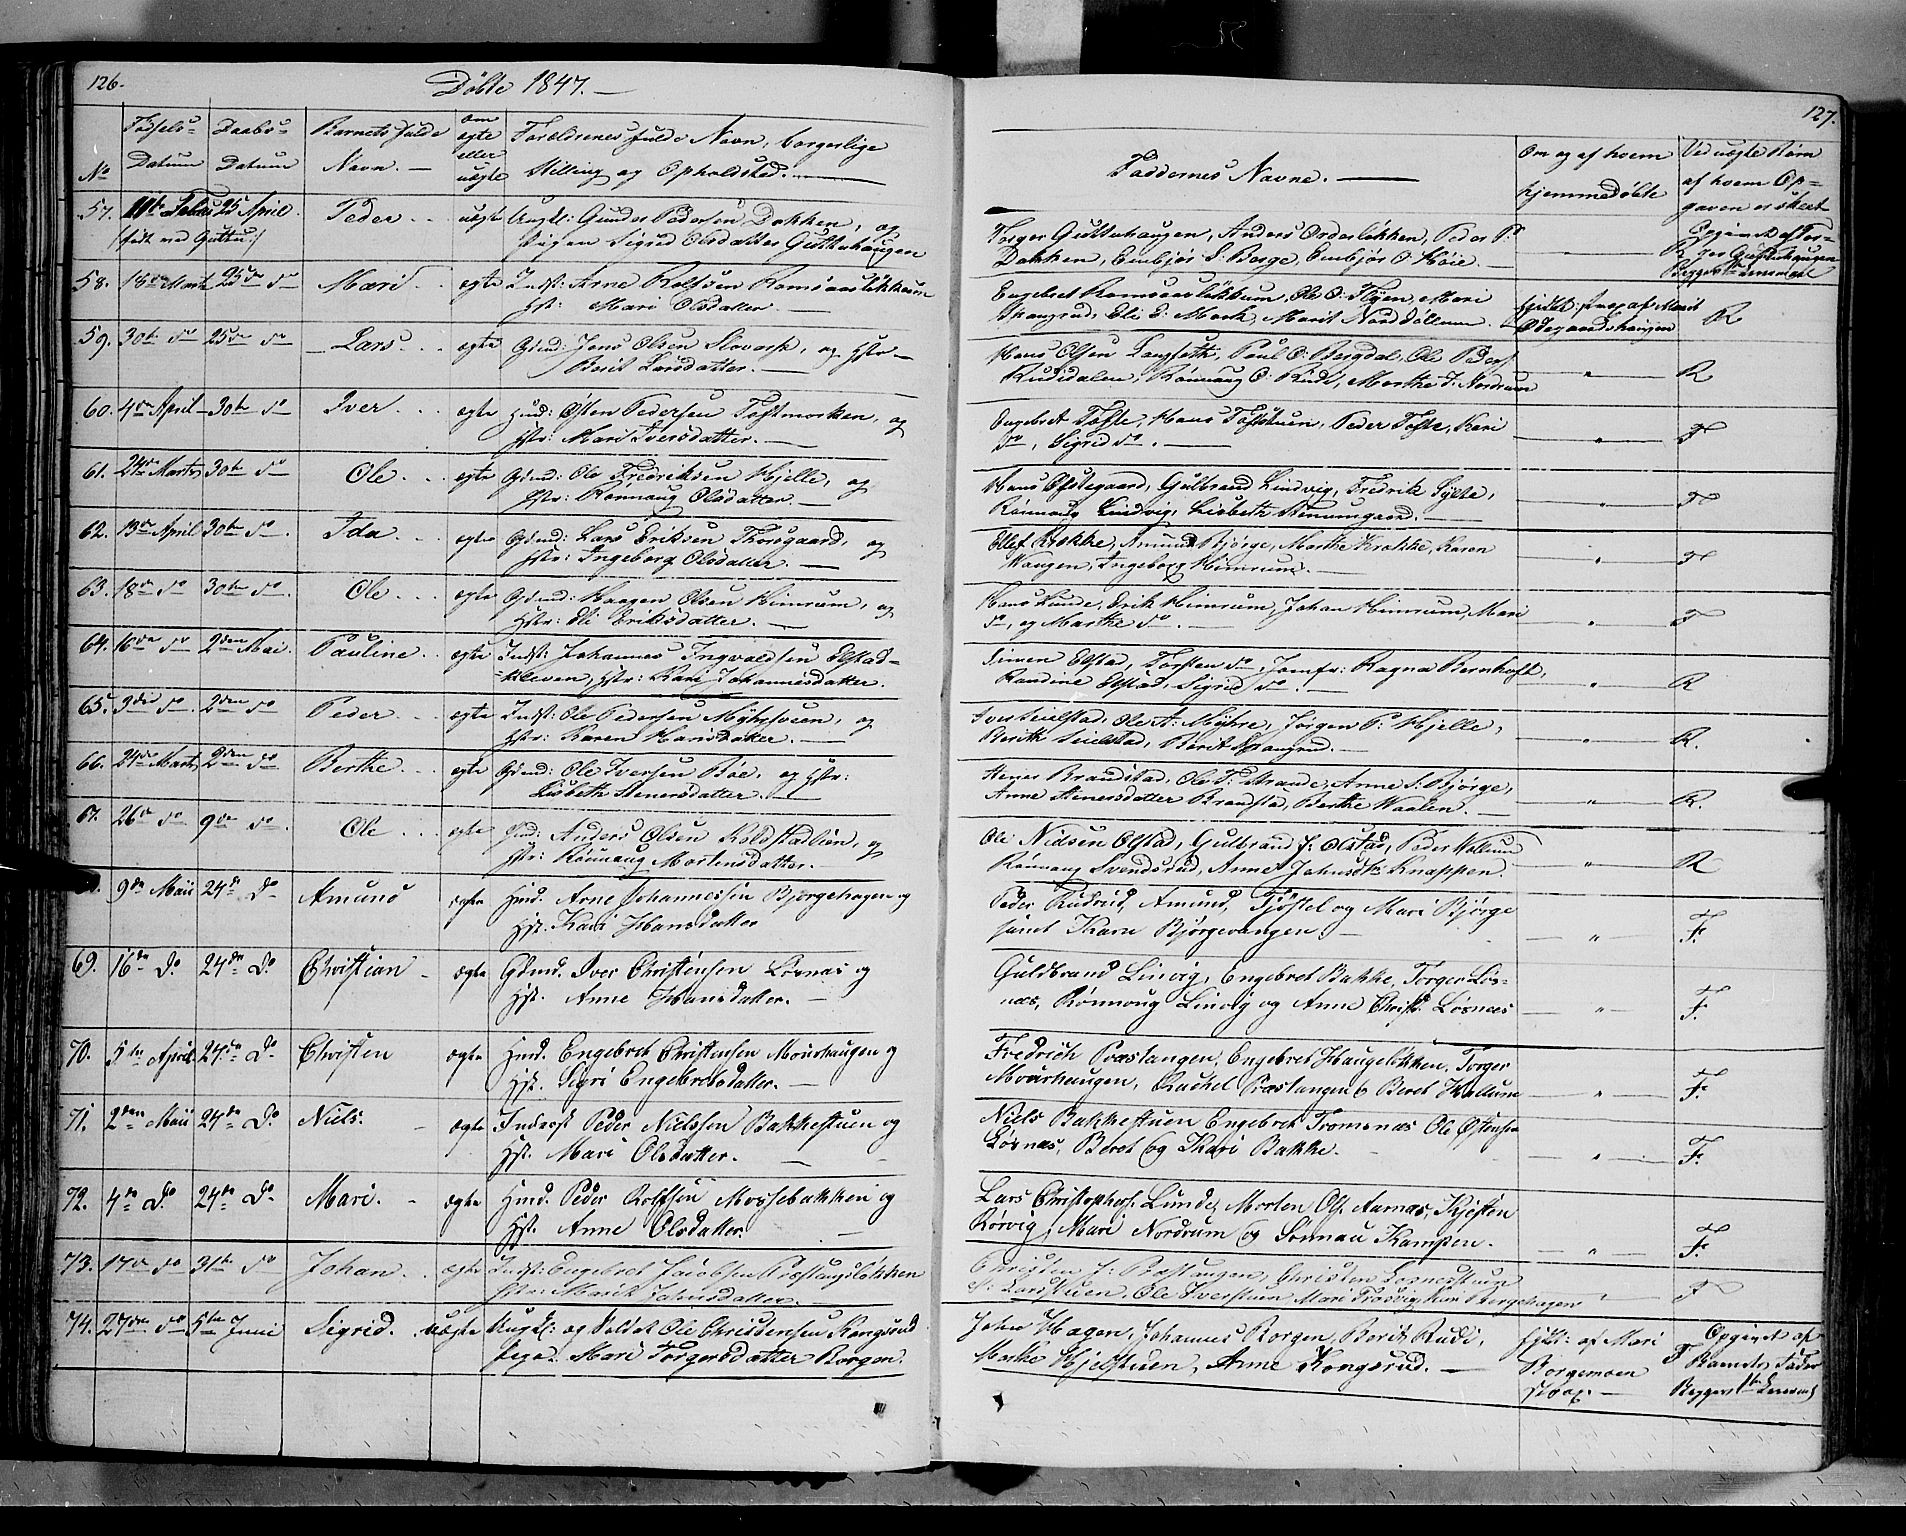 126.
Döbte 1847.—
No
Födsels-
Datum
Daabs-
Datum
Barnets fulde
Navn.—
om
ægte
eller
uægte
Forældrenes fulde Navn, borgerlige
Stilling og Opholdsted.—
57. 25 April Peder uægte Ungkl: Gunder Pedersen Dokken, og
Pigen Sigrid Olsdatter Guttuhaugen
58. 18de Marts 25de do Mari ægte Indst: Arne Rolfsen Ramsaasløkkum
Hstr: Mari Olsdatter.—
59. 30te do 25de do Lars ægte Gdmd: Jens Olsen og Hstr
Berit Larsdatter.—
60. 4de April 30te do Iver ægte Hmd: Østen Pedersen Toftmorken, og
Hstr: Mari Iversdatter.—
61. 24de Marts 30te do Ole ægte Gdmd: Ole Fredriksen Hjelle, og
Hstr: Rønnaug Olsdatter.—
62. 13de April 30te do Ida ægte Gdmd: Lars Eriksen Thorsgaard, og
Hstr: Ingeborg Olsdatter.—
63. 18de do 30te do Ole ægte Gdmd: Haagen Olsen Himrum, og
Hstr: Eli Eriksdatter.—
64. 16de do 2den Mai Pauline ægte Indst: Johannes Ingvaldsen Elstad-
kleven, Hstr: Kari Johannesdatter.
65. 9de do 2den do Peder ægte Indst: Ole Pedersen og
Hstr: Karen Hansdatter.—
66. 24de Marts 2den do Berthe ægte Gdmd: Ole Iversen Böe, og Hstr:
Lisbeth Stenersdatter.—
67. 26de do 9de do Ole ægte Hmd: Anders Olsen Kolstadlien, og
Hstr: Rønnaug Mortensdatter.
9de Maii 24de Do Amund ægte Hmd. Arne Johannessen Bjørgehagen og
Hst. Kari Hansdatter
69. 16de Do 24de Do Christian ægte Gdmd. Iver Christensen Losnæs og
Hst. Anne Hansdatter.—
70. 5te April 24de Do Christen ægte Hmd. Engebret Christensen Mourhaugen og
Hst. Sigri Engebretsdatter.—
71. 2den Maii 24de Do Niels. ægte Inderst Peder Nielssen Bakkestuen og
Hst. Mari Olsdatter.—
72. 4de Do 24de Do Mari. ægte Hmd. Peder Rolfsen Mossebakken og
Hst. Anne Olsdatter.
73. 17de do 31te do Johan. ægte Indst: Engebret Jacobsen Præstangsløkken
Hstr: Marit Johnsdatter.—
74. 27de do 5te Juni Sigrid. uægte Ungkl: og Soldat Ole Christensen Kongsrud
Pige: Mari Torgersdatter Borgen.
127.
Faddernes Navne.—
Om og af hvem
hjemmedöbte
Ved uægte Börn
af hvem Op-
gaven er skeet
Torger Guttuhaugen, Anders Peder P:
Dokken, Embjör S: Berge, Embjör O: Höie.—
Engebret Ramsaasløkkum, Ole O: Mari
Skaugrud, Eli E: Mork, Marit R
Hans Olsen Langseth, Paul O: Bergdal, Ole Peders
Rudidalen, Rönnaug O: Rudi, Marthe J: Nordrum R
Engebret Tofte, Hans Toftstuen, Peder Tofte, Kari
do, Sigrid do.— F
Hans Gulbrand Lindvig, Fredrik Sylte,
Rönnaug Lindvig, Lisbeth F
Ellef Krokke, Amund Björge, Marthe Karen
Haugen, Ingeborg Himrum.— F
Hans Lunde, Erik Himrum, Johan Himrum, Mari
do, og Marthe do.— F
Simen Elstad, Torsten do, Jomfr: Ragna Bernhoft,
Randine Elstad, Sigrid do.— R
Iver Seielstad, Ole A: Myhre, Jörgen P: Hjelle,
Berith Seielstad, Berit Skaugrud.— R.
Brandstad, Ole T: Strande, Anne S: Bjørge,
Anne Stenersdatter Brandstad, Berthe Haalen.— R.
Ole Nielsen Olstad, Gulbrand J: Olstad, Peder Hollum
Rønnaug Svendsrud, Anne Johnsdtr Knappen. R
Peder Rudrud, Amund, Tjøstel og Mari Bjørge
samt Karn Bjørgevangen F.
Guldbrand Linvig, Engebret Bakke, Torger Los-
næs, Rønnoug Linvig og Anne Christd. Losnæs F.
Fredrich Præstangen, Engebret Haugeløkken, Torger
Mourhaugen, Rachel Præstangen & Beret Hallum F.
Niels Bakkestuen Engebret Tromsnæs Ole Østensen
Losnæs, Beret og Kari Bakke. F.
Lars Christophers. Lunde, Morten Ols. Aarnæs, Kjersten
Rørvig, Mari Nordrum og Kampen. F.
Christen J: Præstangen, Christen Losnerstuen
Ole Iverstuen Mari Kari Bergehagen F
John Hagen, Johannes Borgen, Berit Rudi,
Marthe Hjelstuen, Anne Kongsrud.—
hjdbt: af Mari
Borgemoen
Skoug.—
Opgivet af
F Barnets Fader
Begges 1te Leiermaal